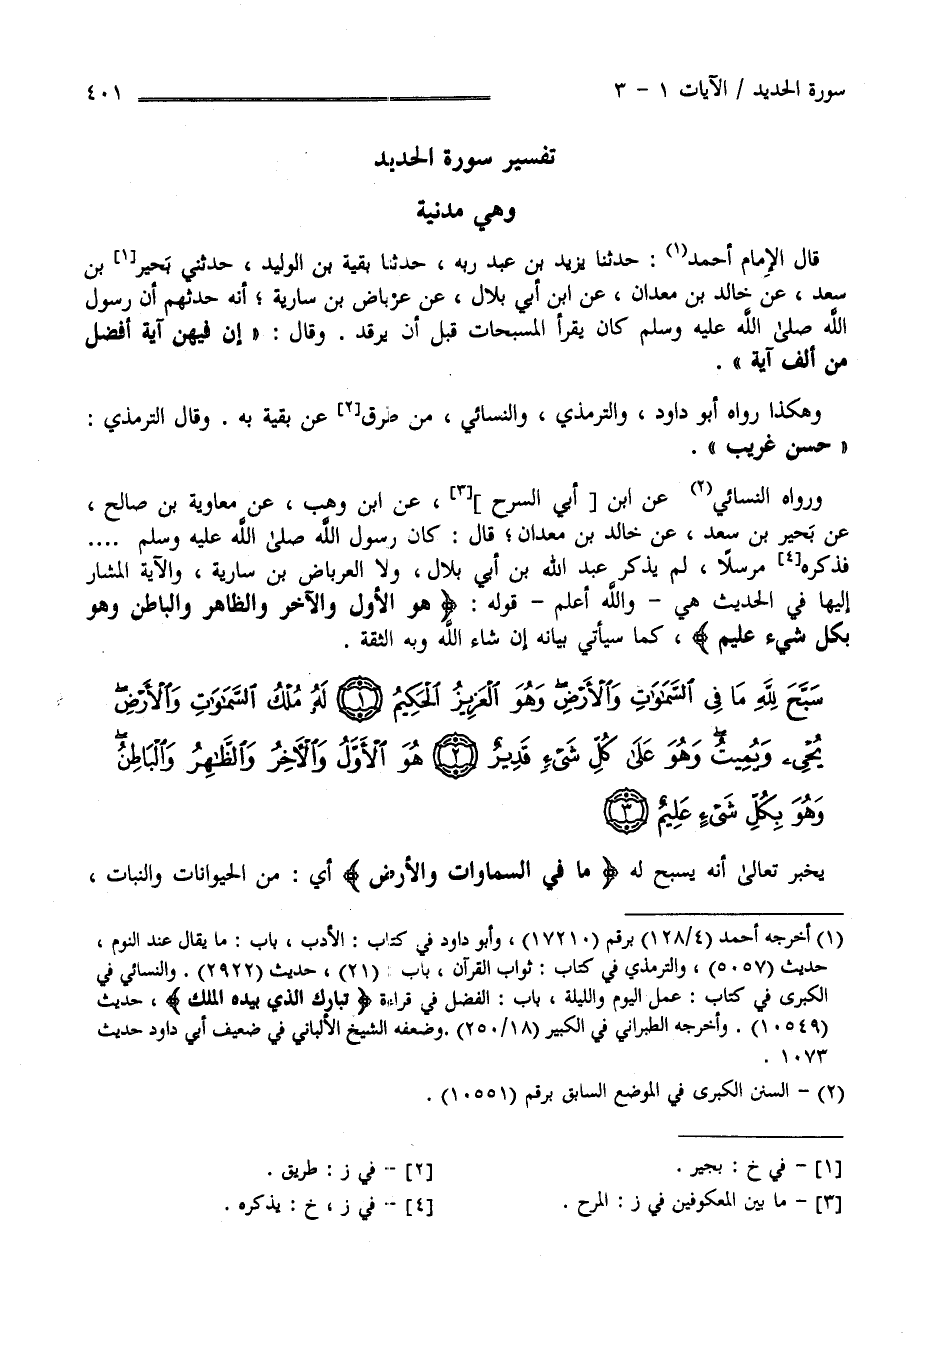 سورة الحديد / الآيات ١ - ٣ ٤٠١
تفسير سورة الحديد
وهي مدنية
قال الإمام أحمد(١) : حدثنا يزيد بن عبد ربه ، حدثنا بقية بن الوليد ، حدثني بَحير[١] بن
سعد ، عن خالد بن معدان ، عن ابن أبي بلال ، عن عرْباض بن سارية ؛ أنه حدثهم أن رسول
اللَّه صلىٰ اللَّه عليه وسلم كان يقرأ المسبحات قبل أن يرقد . وقال : « إن فيهن آية أفضل
من ألف آية » .
وهكذا رواه أبو داود ، والترمذي ، والنسائي ، من طرق[٢] عن بقية به . وقال الترمذي :
« حسن غريب » .
ورواه النسائي(٢) عن ابن [ أبي السرح ][٣] ، عن ابن وهب ، عن معاوية بن صالح ،
عن بَحير بن سعد ، عن خالد بن معدان ؛ قال : كان رسول اللَّه صلىٰ اللَّه عليه وسلم ....
فذكره[٤] مرسلًا ، لم يذكر عبد اللَّه بن أبي بلال ، ولا العرباض بن سارية ، والآية المشار
إليها في الحديث هي - واللَّه أعلم - قوله : ﴿ هو الأول والآخر والظاهر والباطن وهو
بكل شيء عليم ﴾ ، كما سيأتي بيانه إن شاء اللَّه وبه الثقة .
سَبَّحَ لِلَّهِ مَا فِي ٱلسَّمَٰوَٰتِ وَٱلْأَرْضِۖ وَهُوَ ٱلْعَزِيزُ ٱلْحَكِيمُ ﴿١﴾ لَهُۥ مُلْكُ ٱلسَّمَٰوَٰتِ وَٱلْأَرْضِۖ
يُحْيِۦ وَيُمِيتُۖ وَهُوَ عَلَىٰ كُلِّ شَىْءٍ قَدِيرٌ ﴿٢﴾ هُوَ ٱلْأَوَّلُ وَٱلْآخِرُ وَٱلظَّٰهِرُ وَٱلْبَاطِنُۖ
وَهُوَ بِكُلِّ شَىْءٍ عَلِيمٌ ﴿٣﴾
يخبر تعالىٰ أنه يسبح له ﴿ ما في السماوات والأرض ﴾ أي : من الحيوانات والنبات ،
(١) أخرجه أحمد (١٢٨/٤) برقم (١٧٢١٠) ، وأبو داود في كتاب : الأدب ، باب : ما يقال عند النوم ،
حديث (٥٠٥٧) ، والترمذي في كتاب : ثواب القرآن ، باب : (٢١) ، حديث (٢٩٢٢) . والنسائي في
الكبرى في كتاب : عمل اليوم والليلة ، باب : الفضل في قراءة ﴿ تبارك الذي بيده الملك ﴾ ، حديث
(١٠٥٤٩) . وأخرجه الطبراني في الكبير (٢٥٠/١٨) .وضعفه الشيخ الألباني في ضعيف أبي داود حديث
١٠٧٣ .
(٢) - السنن الكبرى في الموضع السابق برقم (١٠٥٥١) .
[١] - في خ : بجير . [٢] - في ز : طريق .
[٣] - ما بين المعكوفين في ز : المرح . [٤] - في ز ، خ : يذكره .